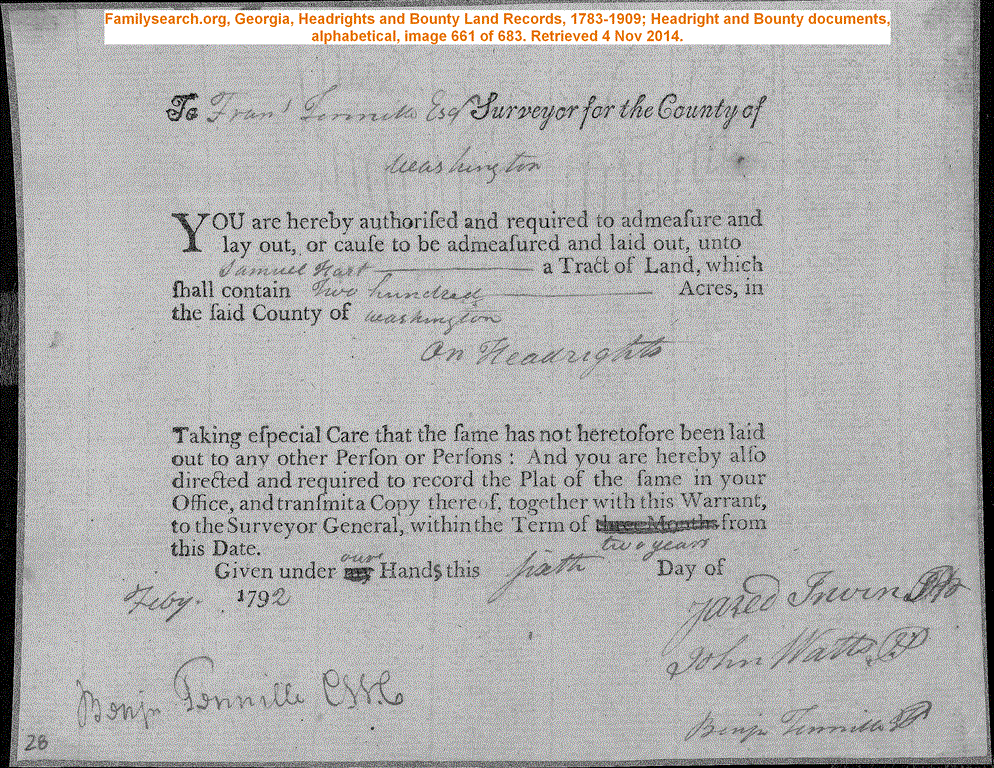 Familysearch.org, Georgia, Headrights and Bounty Land Records, 1783-1909; Headright and Bounty documents,
alphabetical, image 661 of 683. Retrieved 4 Nov 2014.
To Fran^s Tennille Esq^r Surveyor for the County of
Washington
YOU are hereby authoriſed and required to admeaſure and
lay out, or cauſe to be admeaſured and laid out, unto
Samuel Hart a Tract of Land, which
ſhall contain Two hundred Acres, in
the ſaid County of Washington
On Headrights
Taking eſpecial Care that the ſame has not heretofore been laid
out to any other Perſon or Perſons: And you are hereby alſo
directed and required to record the Plat of the ſame in your
Office, and tranſmit a Copy thereof, together with this Warrant,
to the Surveyor General, within the Term of three Months from
two years
this Date.
our
Given under my Hands this sixth Day of
Feby. 1792
Jared Irwin
John Watts
Benja Tennille
Benja Tennille
28